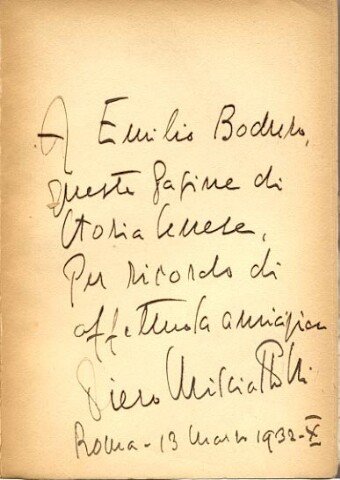 A Emilio Bodrero,
queste pagine di
storia senese,
per ricordo di
affettuosa amicizia
Piero Misciattelli
Roma - 13 Marzo 1932 - X